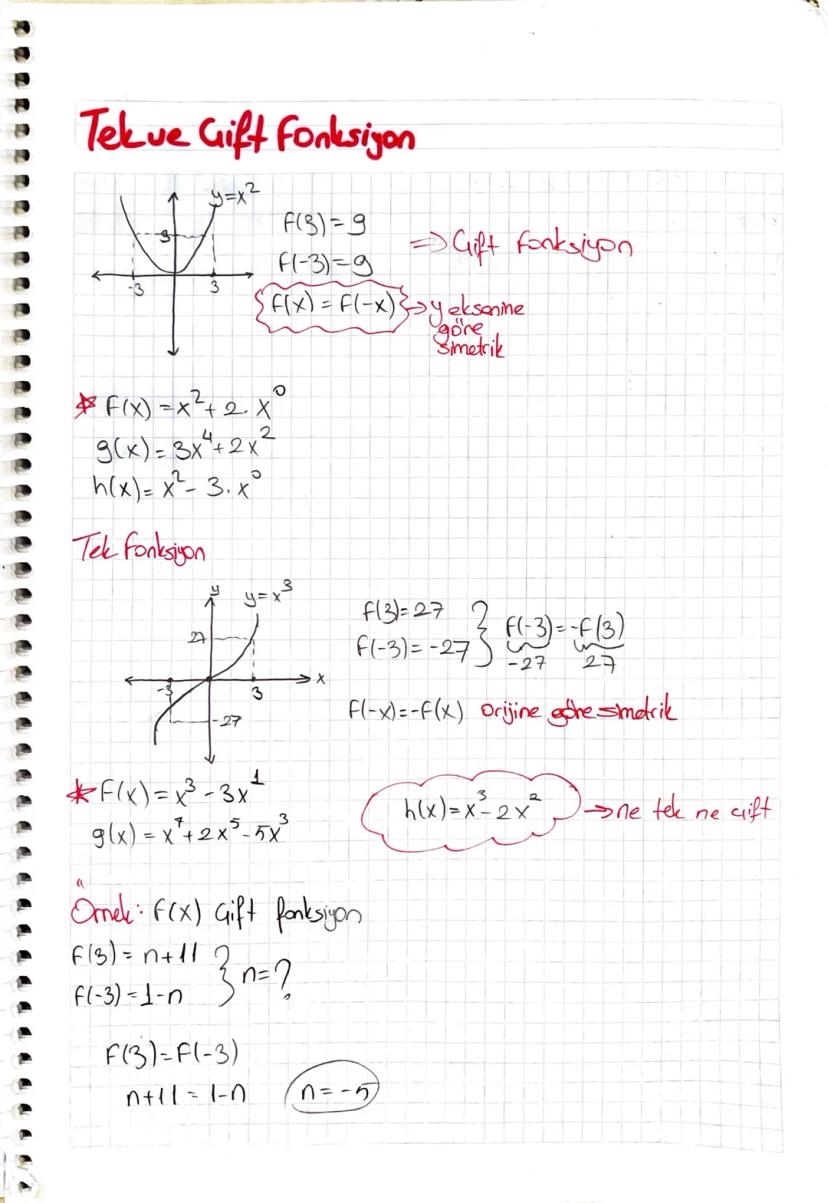 Tek ve Çift Fonksiyon
y=x²
9
-3
3
f(3)=9
f(-3)=9
⇒ Çift fonksiyon
f(x) = f(-x) → y eksenine
göre
simetrik
* f(x) = x² + 2. x⁰
g(x) = 3x⁴ + 2x²
h(x) = x² - 3. x⁰
Tek fonksiyon
y
y=x³
27
-3
3
x
-27
f(3)=27
f(-3)=-27
f(-3)=-f(3)
-27
27
f(-x)=-f(x) Orijine göre simetrik
* f(x) = x³ - 3x¹
g(x) = x⁷ + 2x⁵ - 5x³
h(x) = x³ - 2x² → ne tek ne çift
Örnek: f(x) Çift fonksiyon
f(3) = n+11
f(-3) = 1-n
} n=?
f(3)=f(-3)
n+11 = 1-n
n=-5